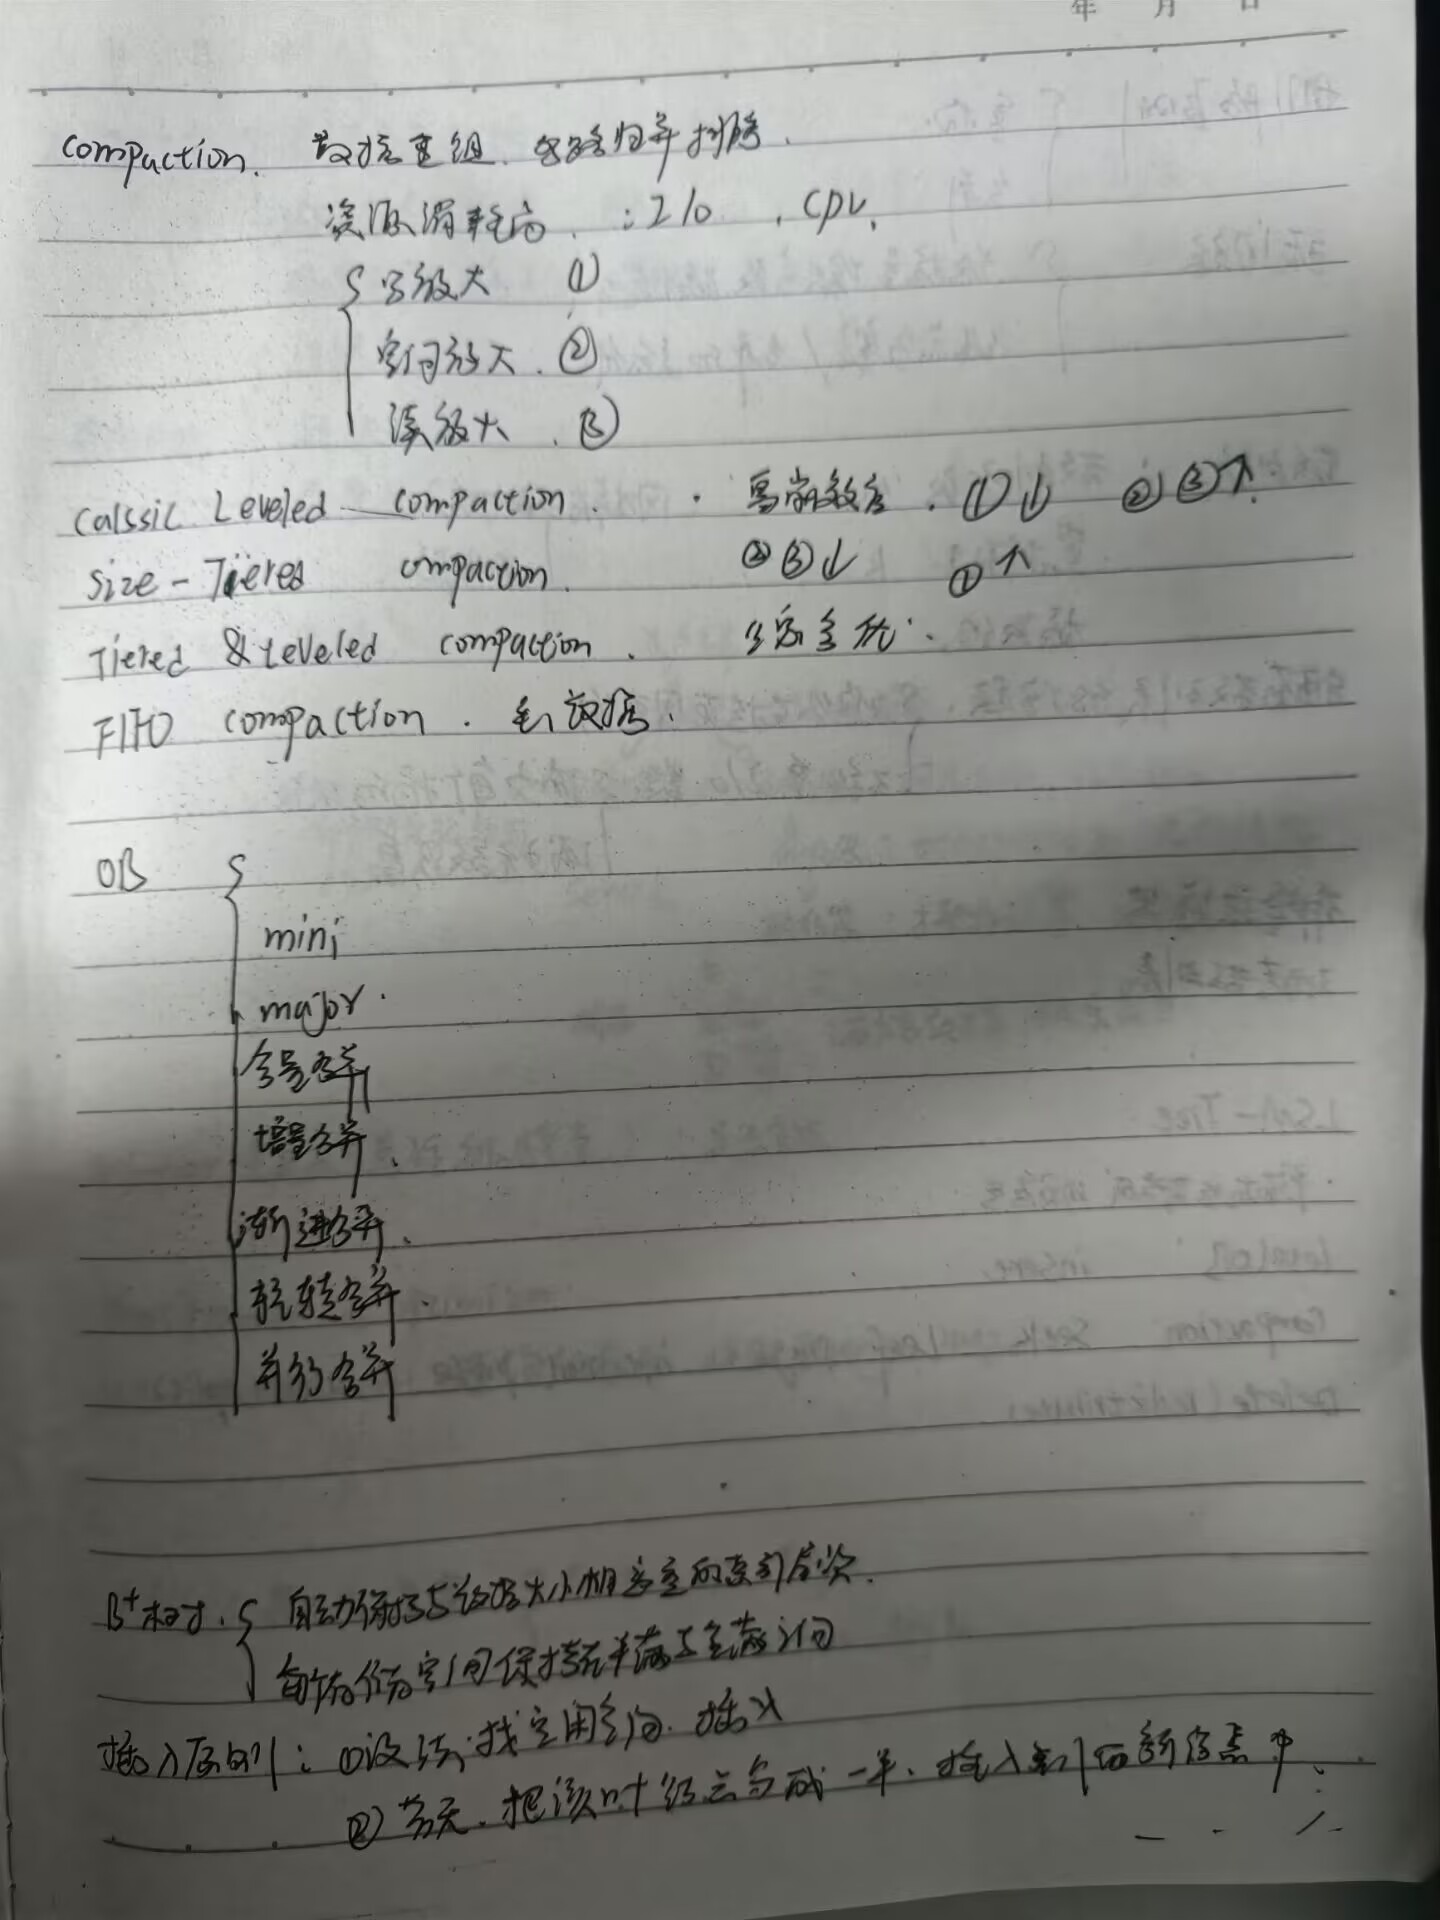 年 月 日
compaction. 数据重组. 多路归并排序.
资源消耗高. : I/O . CPU.
写放大 ①
空间放大. ②
读放大. ③
Calssic Leveled compaction. . ①↓ ②③↑.
size-Tiered compaction. ②③↓ ①↑
Tiered & Leveled compaction.
FIFO compaction. 数据.
OB
mini
major.
全量合并
增量合并.
渐进合并.
轮转合并.
并行合并
B⁺树. 自动保持与数据大小相适应的索引层次.
空间保持在半满与全满之间
插入原则: ①设法找空用空间. 插入
② 若无. 把该叶结点分成一半. 插入到新结点中